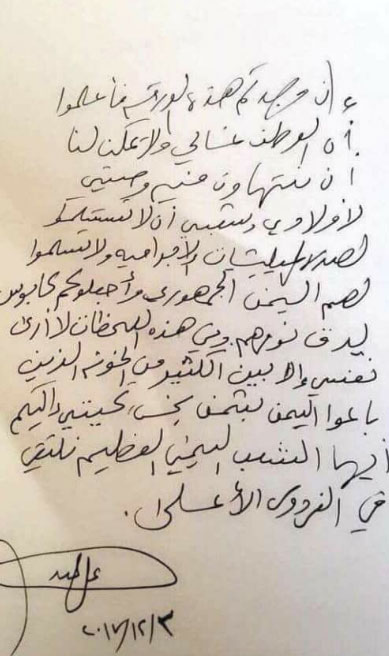 إن وجدتم هذه الورقة فأعلموا
أن الوطن غالي ولا يمكن لنا
أن نتهاون فيه وصيتي
لأولادي وشعبي أن لا تستسلمو
لهذه المليشيات الإجرامية ولا تسلموا
لهم اليمن الجمهوري وأجعلوكم كابوس
يدق نومهم وفي هذه اللحظات لا أرى
نفسي إلا بين الكثير من الخونة الذين
باعوا اليمن بثمن بخس تحيتي إليكم
أيها الشعب اليمني العظيم نلتقي
في الفردوس الأعلى.
٢٠١٧/١٢/٣